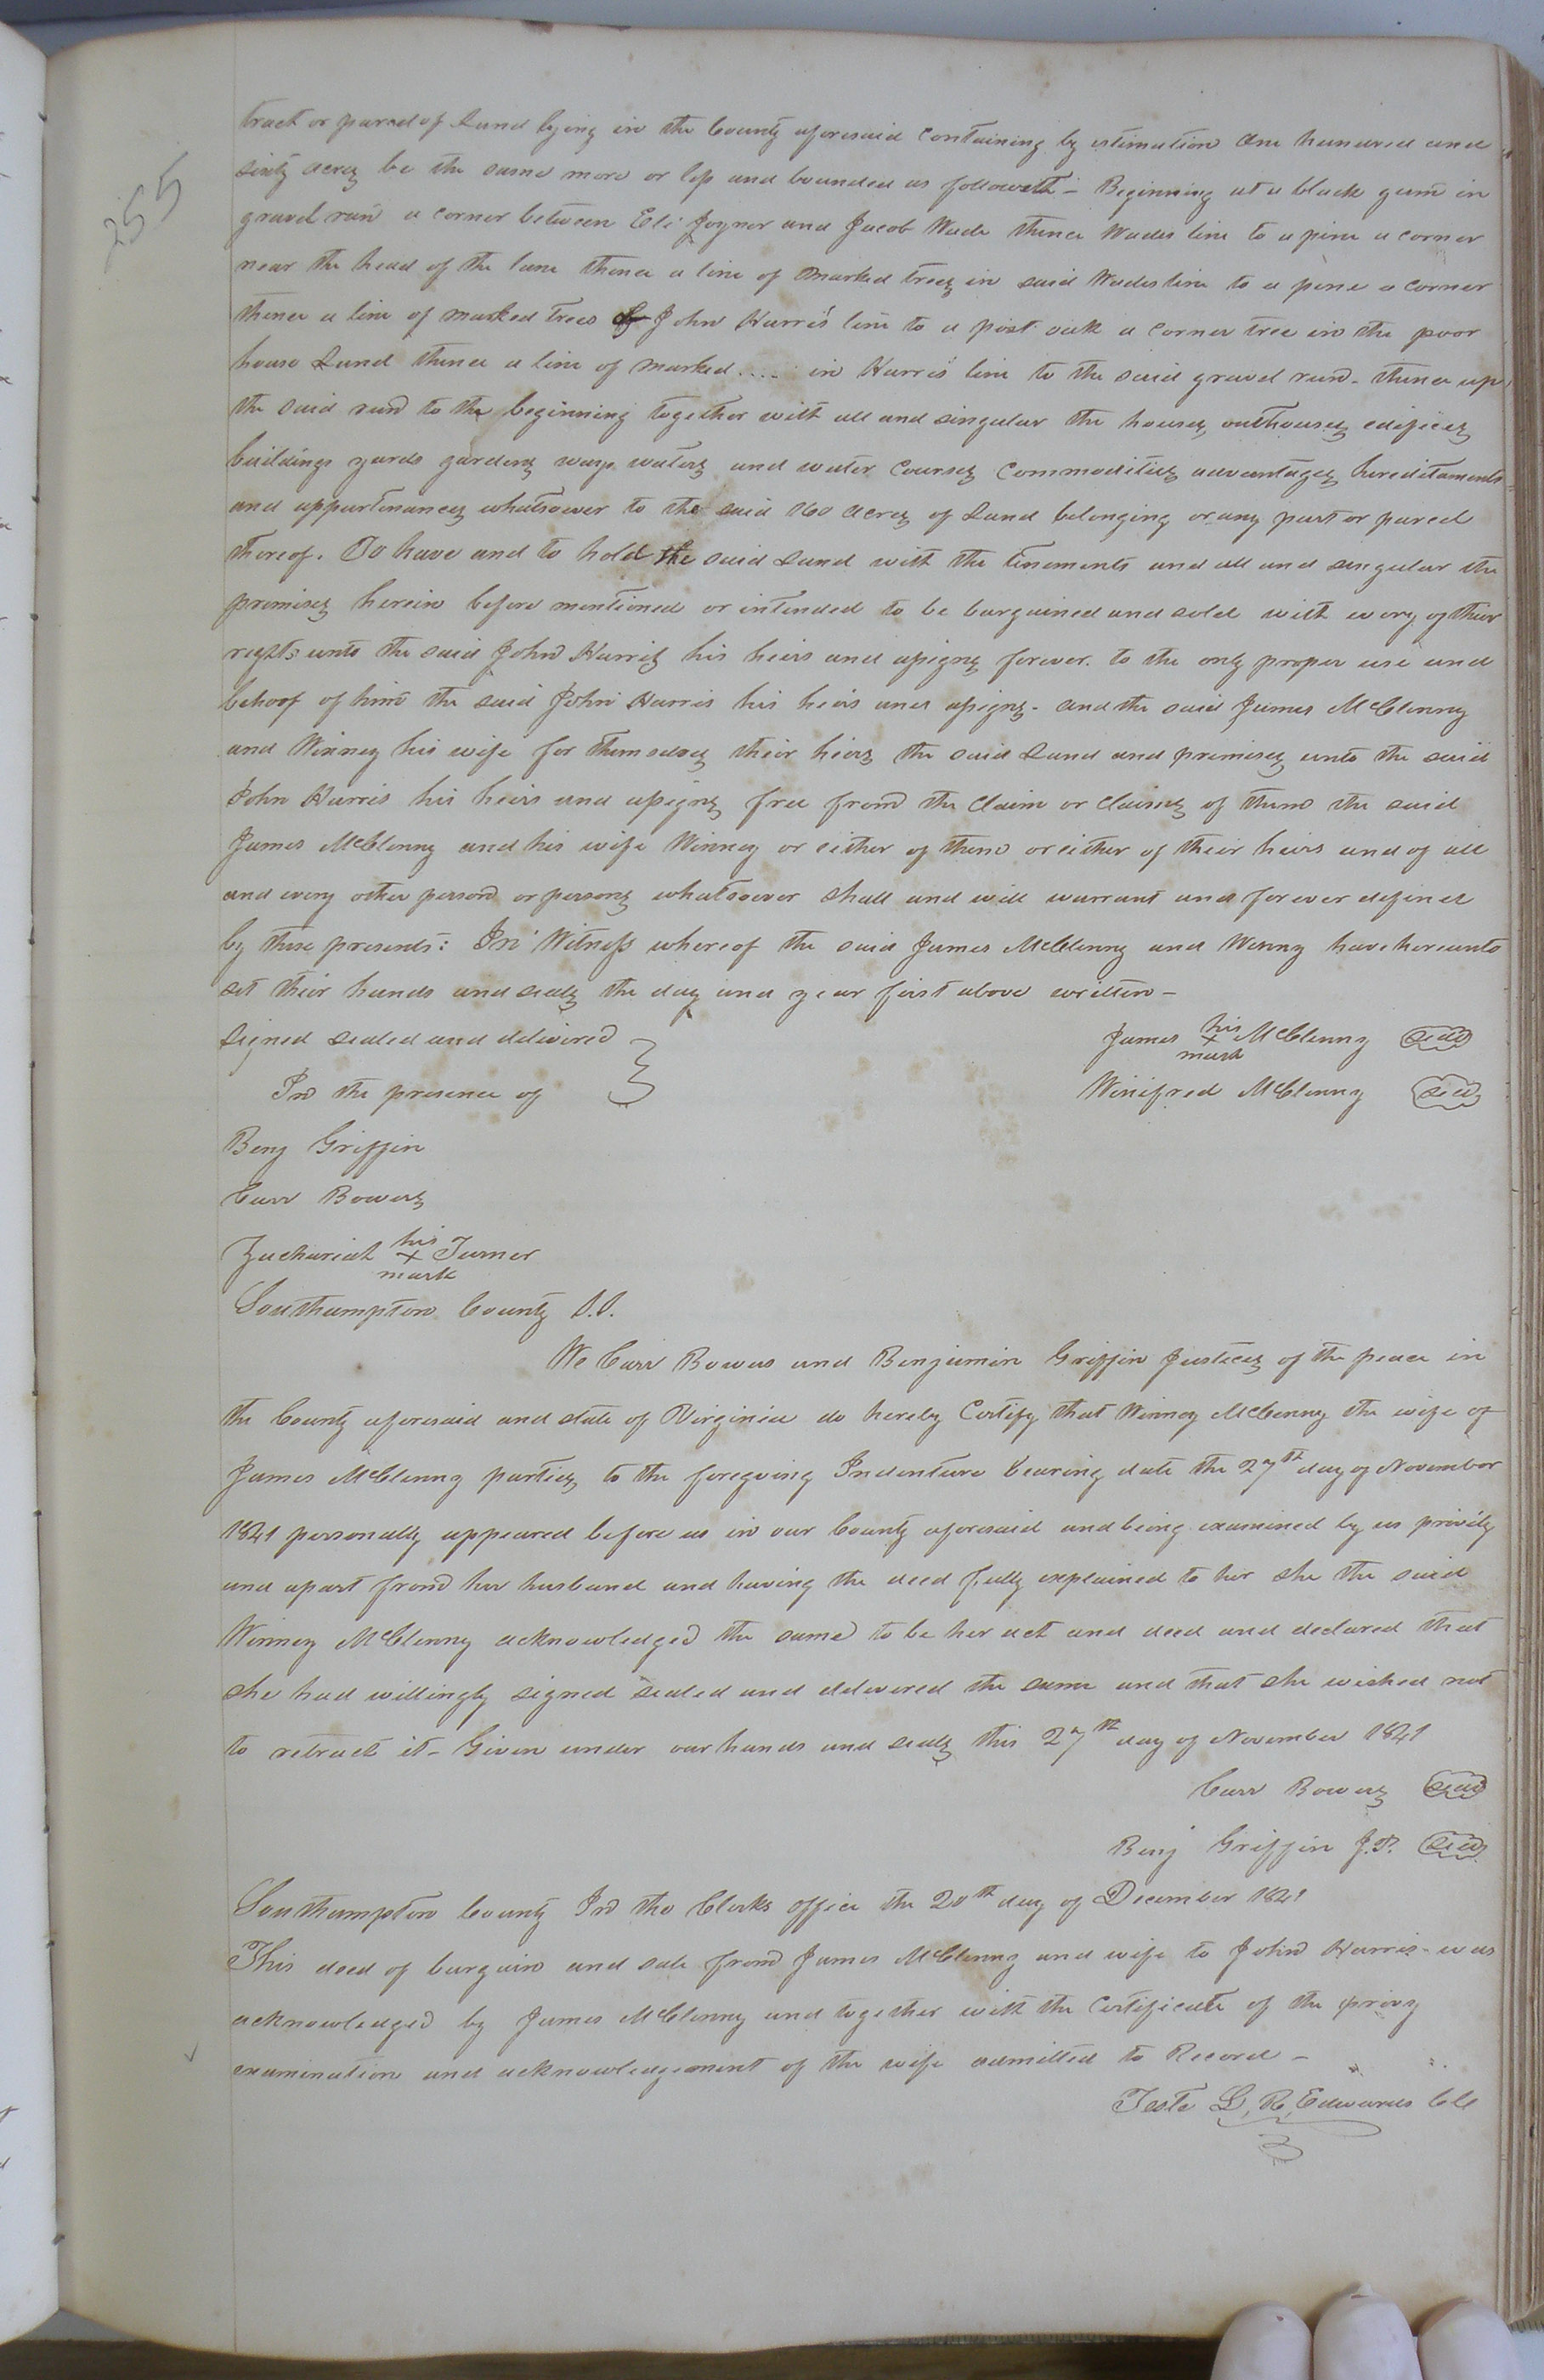 255
tract or parcel of Land lying in the County aforesaid containing by estimation One hundred and
sixty acres be the same more or less and bounded as followeth - Beginning at a black gum in
gravel run a corner between Eli Joyner and Jacob Wade thence Wades line to a pine a corner
near the head of the lane thence a line of marked trees in said Wades line to a pine a corner
thence a line of marked trees John Harris' line to a post oak a corner tree in the poor
house Land thence a line of marked .... in Harris' line to the said gravel run - thence up
the said run to the beginning together with all and singular the houses, outhouses, edifices
buildings yards gardens ways, waters and water courses commodities advantages hereditaments
and appurtenances whatsoever to the said 160 acres of Land belonging or any part or parcel
thereof. To have and to hold the said Land with the tenements and all and singular the
premises herein before mentioned or intended to be bargained and sold with every of their
rights unto the said John Harris his heirs and assigns forever. to the only proper use and
behoof of him the said John Harris his heirs and assigns - and the said James McClenny
and Winney his wife for themselves their heirs the said Land and premises unto the said
John Harris his heirs and assigns free from the claim or claims of them the said
James McClenny and his wife Winney or either of them or either of their heirs and of all
and every other person or persons whatsoever shall and will warrant and forever defend
by these presents: In Witness whereof the said James McClenny and Winny have hereunto
set their hands and seals the day and year first above written -
Signed sealed and delivered } James his x mark McClenny seal
In the presence of Winifred McClenny seal
Benj Griffin
Carr Bowers
Zachariah his x mark Turner
Southampton County S.S.
We Carr Bowers and Benjamin Griffin Justices of the peace in
the County aforesaid and state of Virginia do hereby Certify that Winney McClenny the wife of
James McClenny parties to the foregoing Indenture bearing date the 27th day of November
1841 personally appeared before us in our County aforesaid and being examined by us privily
and apart from her husband and having the deed fully explained to her she the said
Winney McClenny acknowledged the same to be her act and deed and declared that
she had willingly signed sealed and delivered the same and that she wished not
to retract it - Given under our hands and seals this 27th day of November 1841
Carr Bowers seal
Benj Griffin J.P. seal
Southampton County In the Clerks office the 20th day of December 1841
This deed of bargain and sale from James McClenny and wife to John Harris - was
acknowledged by James McClenny and together with the certificate of the privy
examination and acknowledgement of the wife admitted to Record -
Teste L. R. Edwards Clk